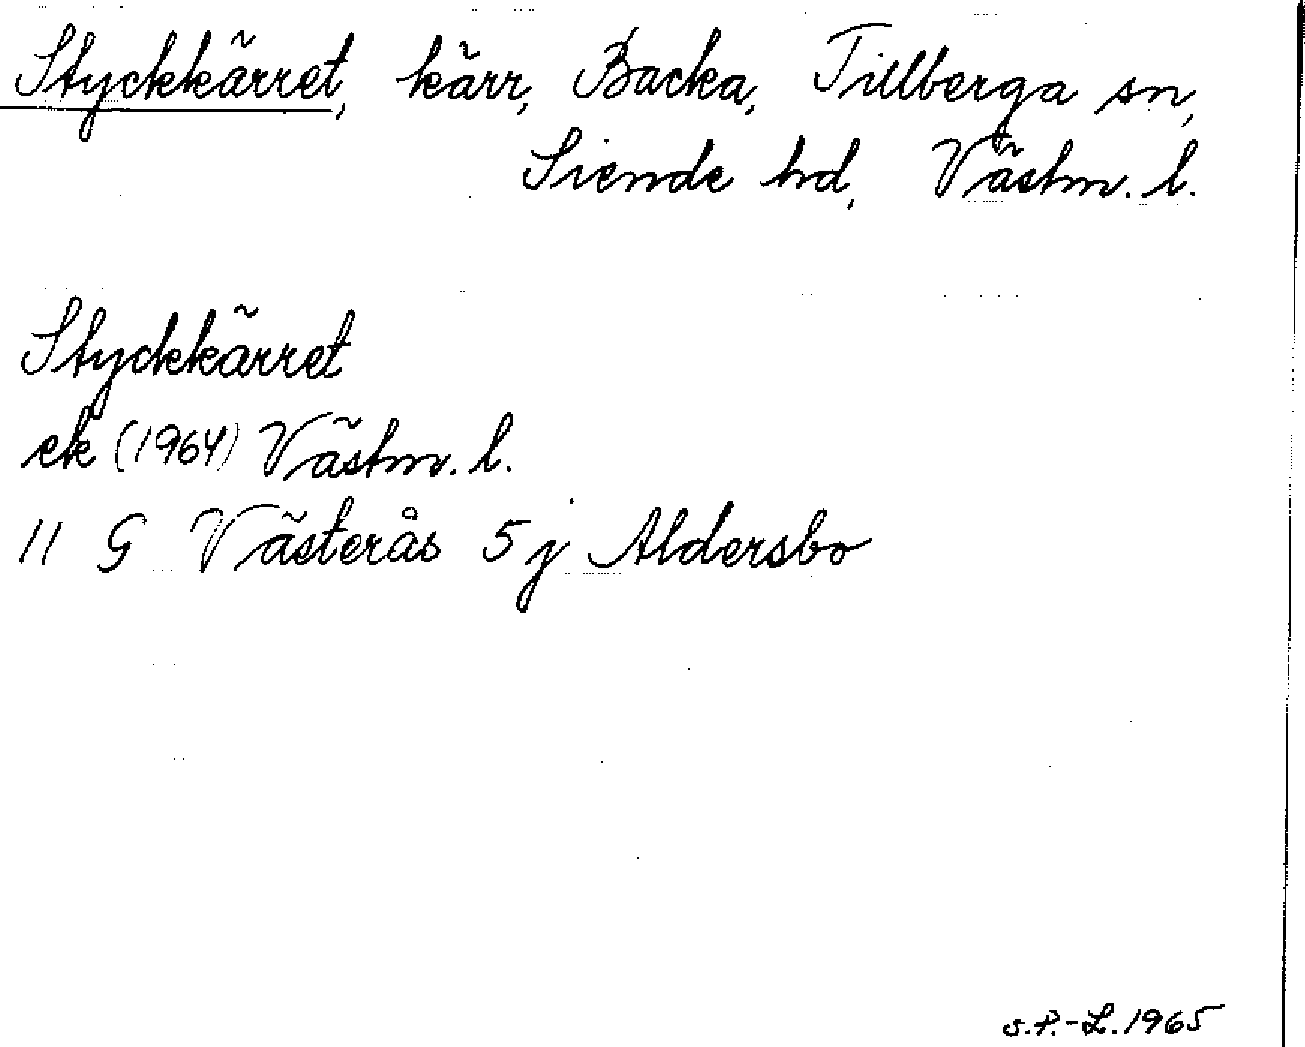 Styckkärret, kärr, Backa, Tillberga sn,
Siende hd, Västm. l.
Styckkärret
ek (1964) Västm. l.
11 G Västerås 5 j Aldersbo
S.P.-L. 1965